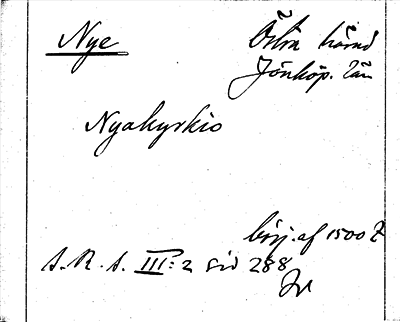 Nye
Östra härad
Jönköp. län
Nyakyrkio
börj. af 1500 t
S. R. A. III: 2 sid 288